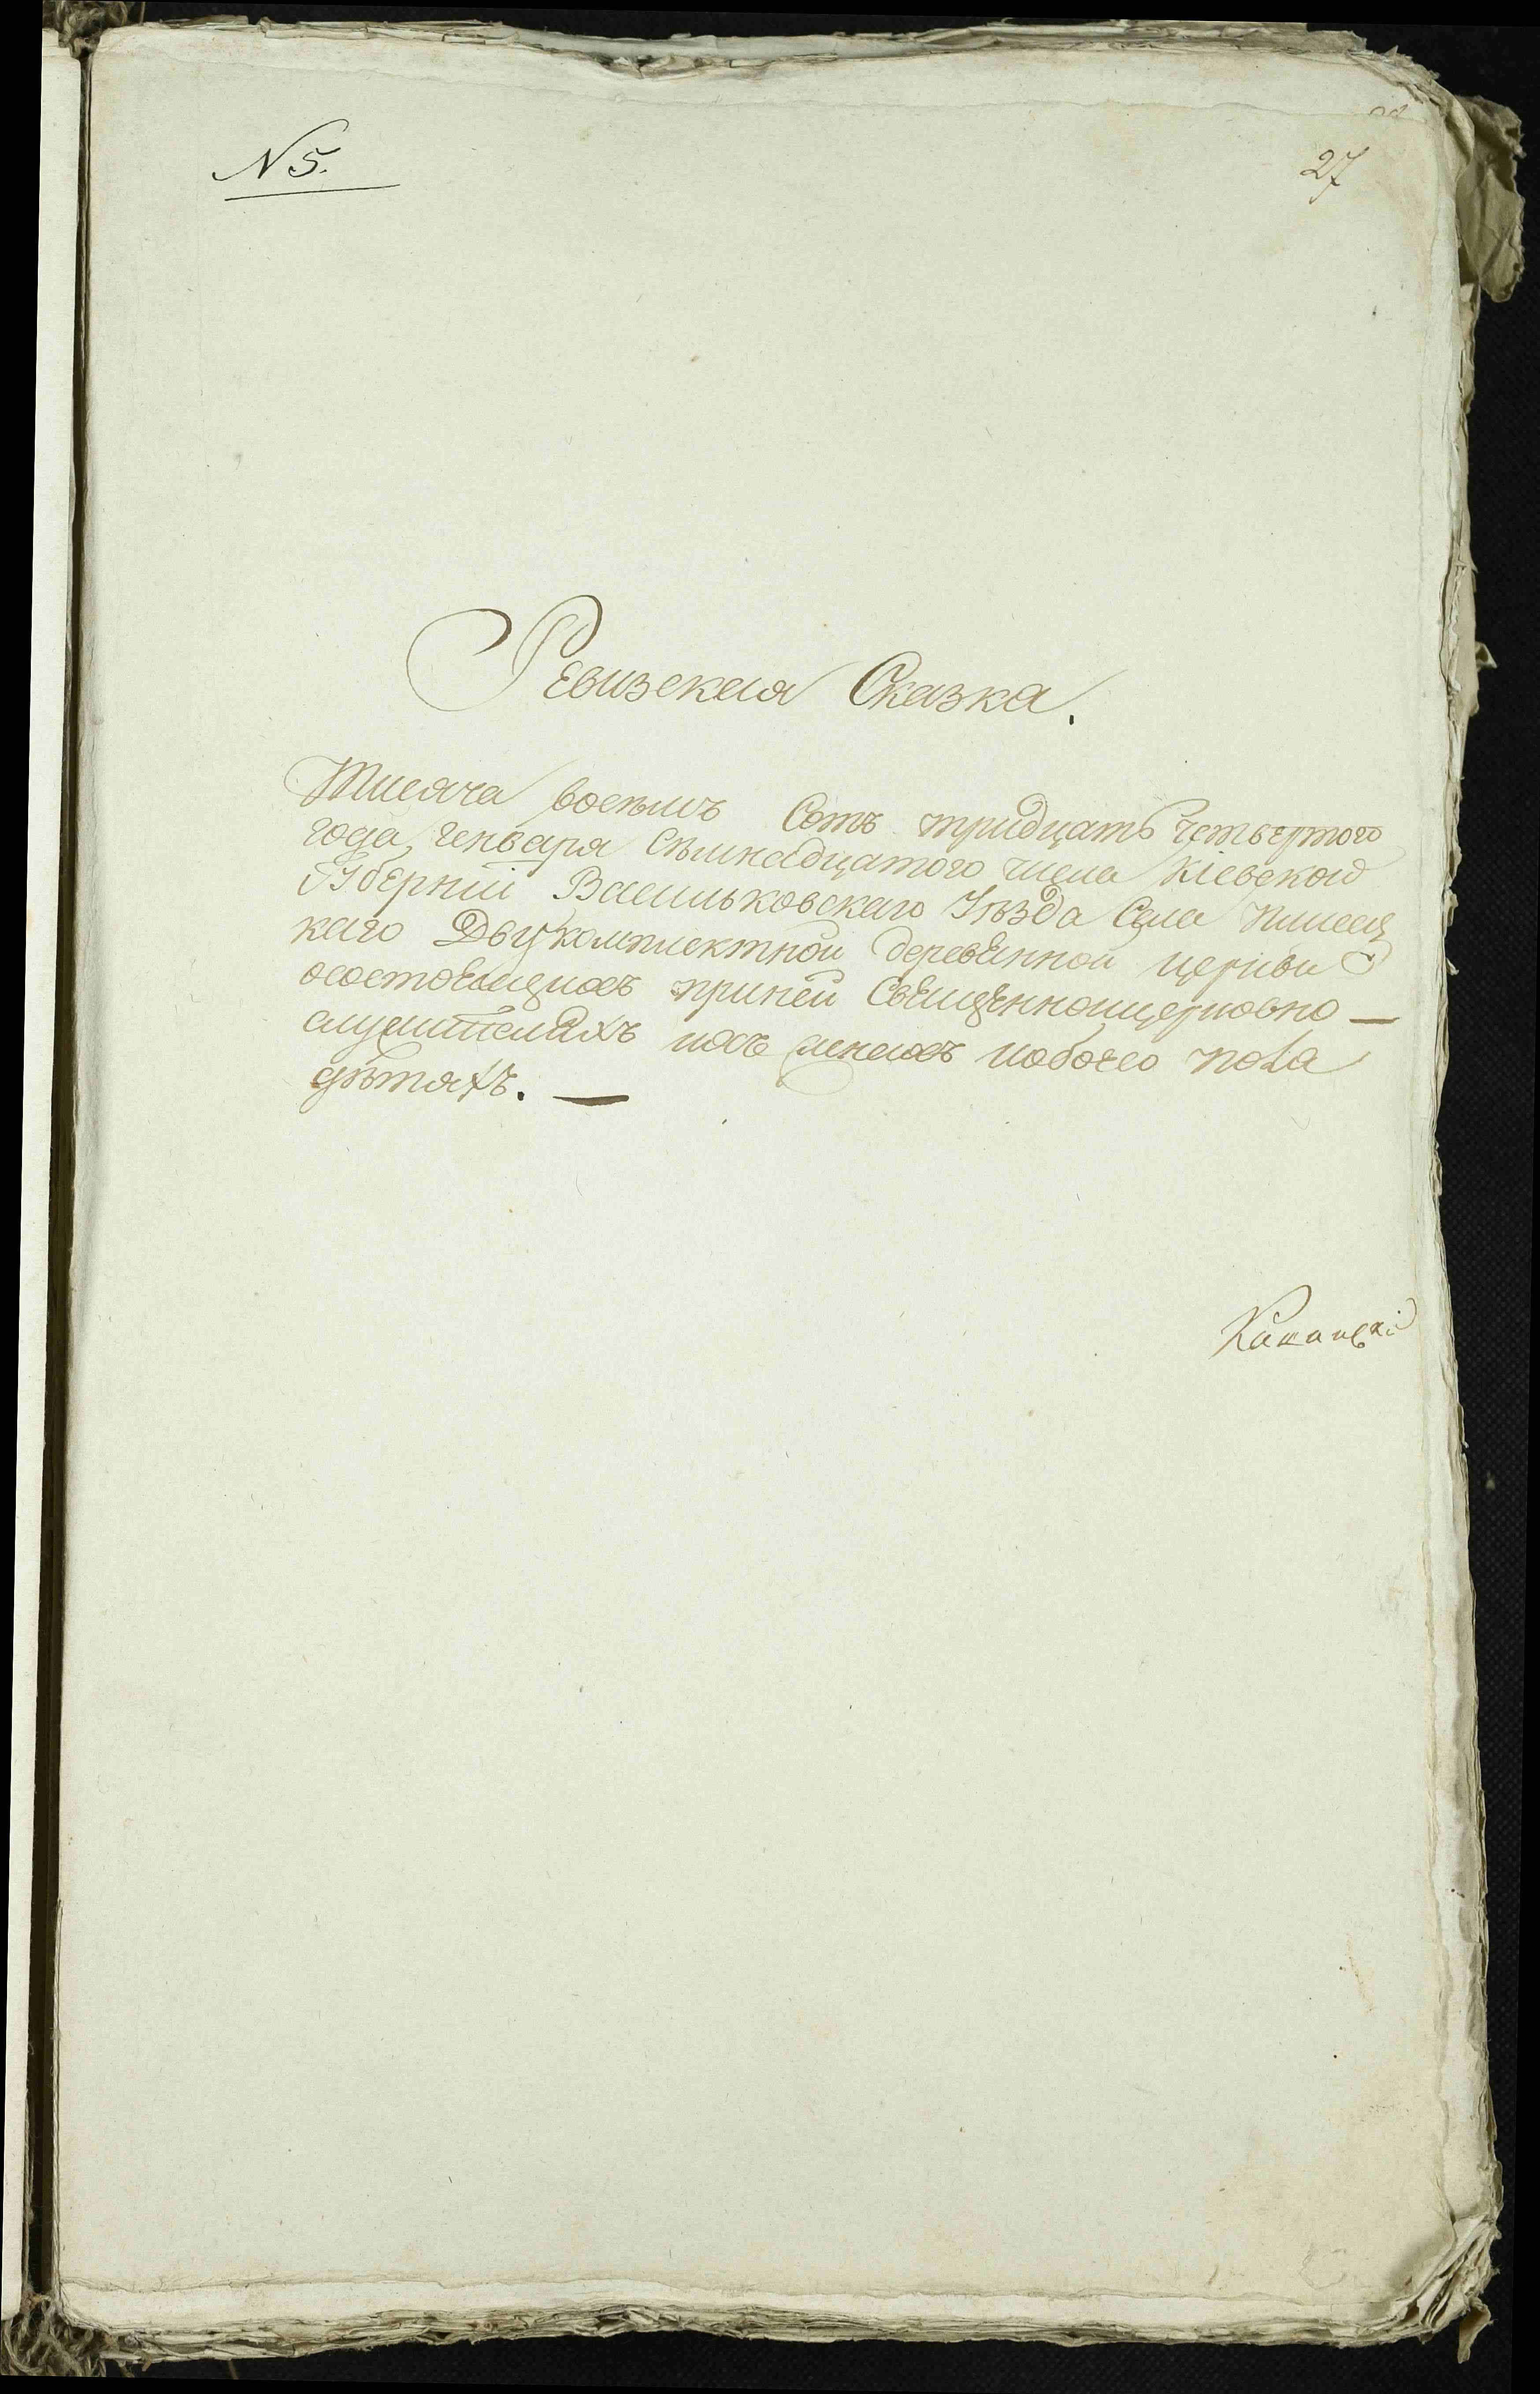 N 5.
27
Ревизская Сказка.
Тисяча восѣмъ Сотъ тридцать четьвертого
года, генваря Сѣмнадцатого числа Кіевской
Губерніи Васильковскаго Уѣзда Села
каго Двукомплектной деревянной церкви
осостоящихъ приней Свещеннонцерковно —
служителяхъ ихъ женахъ иобоего пола
дѣтяхъ. —